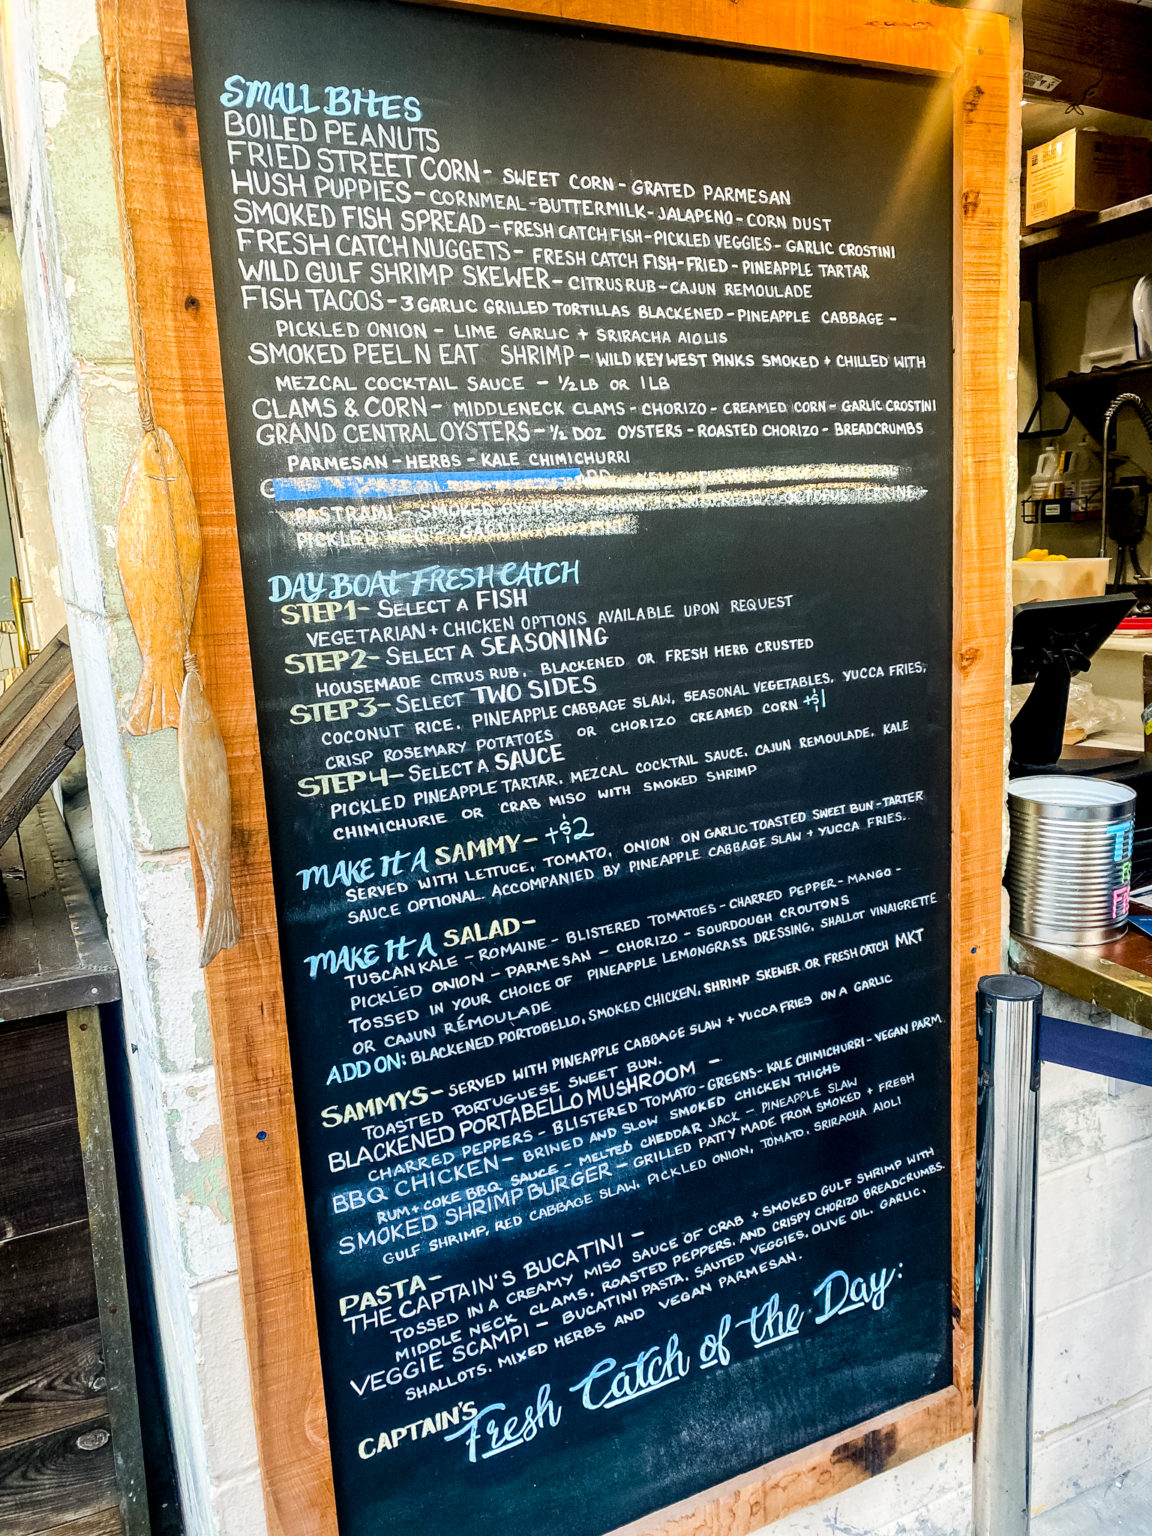 SMALL BITES
BOILED PEANUTS
FRIED STREET CORN - SWEET CORN - GRATED PARMESAN
HUSH PUPPIES - CORNMEAL - BUTTERMILK - JALAPENO - CORN DUST
SMOKED FISH SPREAD - FRESH CATCH FISH - PICKLED VEGGIES - GARLIC CROSTINI
FRESH CATCH NUGGETS - FRESH CATCH FISH - FRIED - PINEAPPLE TARTAR
WILD GULF SHRIMP SKEWER - CITRUS RUB - CAJUN REMOULADE
FISH TACOS - 3 GARLIC GRILLED TORTILLAS BLACKENED - PINEAPPLE CABBAGE -
PICKLED ONION - LIME GARLIC + SRIRACHA AIOLIS
SMOKED PEEL N EAT SHRIMP - WILD KEY WEST PINKS SMOKED + CHILLED WITH
MEZCAL COCKTAIL SAUCE - 1/2 LB OR 1 LB
CLAMS & CORN - MIDDLENECK CLAMS - CHORIZO - CREAMED CORN - GARLIC CROSTINI
GRAND CENTRAL OYSTERS - 1/2 DOZ OYSTERS - ROASTED CHORIZO - BREADCRUMBS
PARMESAN - HERBS - KALE CHIMICHURRI
PASTRAMI - SMOKED OYSTERS OCTOPUS TERRINE
PICKLED VEG - GARLIC CROSTINI
DAY BOAT FRESH CATCH
STEP 1 - SELECT A FISH
VEGETARIAN + CHICKEN OPTIONS AVAILABLE UPON REQUEST
STEP 2 - SELECT A SEASONING
HOUSEMADE CITRUS RUB, BLACKENED OR FRESH HERB CRUSTED
STEP 3 - SELECT TWO SIDES
COCONUT RICE, PINEAPPLE CABBAGE SLAW, SEASONAL VEGETABLES, YUCCA FRIES,
CRISP ROSEMARY POTATOES OR CHORIZO CREAMED CORN +$1
STEP 4 - SELECT A SAUCE
PICKLED PINEAPPLE TARTAR, MEZCAL COCKTAIL SAUCE, CAJUN REMOULADE, KALE
CHIMICHURIE OR CRAB MISO WITH SMOKED SHRIMP
MAKE IT A SAMMY - +$2
SERVED WITH LETTUCE, TOMATO, ONION ON GARLIC TOASTED SWEET BUN - TARTER
SAUCE OPTIONAL. ACCOMPANIED BY PINEAPPLE CABBAGE SLAW + YUCCA FRIES..
MAKE IT A SALAD -
TUSCAN KALE - ROMAINE - BLISTERED TOMATOES - CHARRED PEPPER - MANGO -
PICKLED ONION - PARMESAN - CHORIZO - SOURDOUGH CROUTONS
TOSSED IN YOUR CHOICE OF PINEAPPLE LEMONGRASS DRESSING, SHALLOT VINAIGRETTE
OR CAJUN RÉMOULADE
ADD ON: BLACKENED PORTOBELLO, SMOKED CHICKEN, SHRIMP SKEWER OR FRESH CATCH MKT
SAMMYS - SERVED WITH PINEAPPLE CABBAGE SLAW + YUCCA FRIES ON A GARLIC
TOASTED PORTUGUESE SWEET BUN.
BLACKENED PORTABELLO MUSHROOM -
CHARRED PEPPERS - BLISTERED TOMATO - GREENS - KALE CHIMICHURRI - VEGAN PARM
BBQ CHICKEN - BRINED AND SLOW SMOKED CHICKEN THIGHS
RUM + COKE BBQ SAUCE - MELTED CHEDDAR JACK - PINEAPPLE SLAW
SMOKED SHRIMP BURGER - GRILLED PATTY MADE FROM SMOKED + FRESH
GULF SHRIMP, RED CABBAGE SLAW, PICKLED ONION, TOMATO, SRIRACHA AIOLI
PASTA -
THE CAPTAIN'S BUCATINI -
TOSSED IN A CREAMY MISO SAUCE OF CRAB + SMOKED GULF SHRIMP WITH
MIDDLE NECK CLAMS, ROASTED PEPPERS, AND CRISPY CHORIZO BREADCRUMBS.
VEGGIE SCAMPI - BUCATINI PASTA, SAUTED VEGGIES, OLIVE OIL, GARLIC,
SHALLOTS, MIXED HERBS AND VEGAN PARMESAN.
CAPTAIN'S Fresh Catch of the Day: